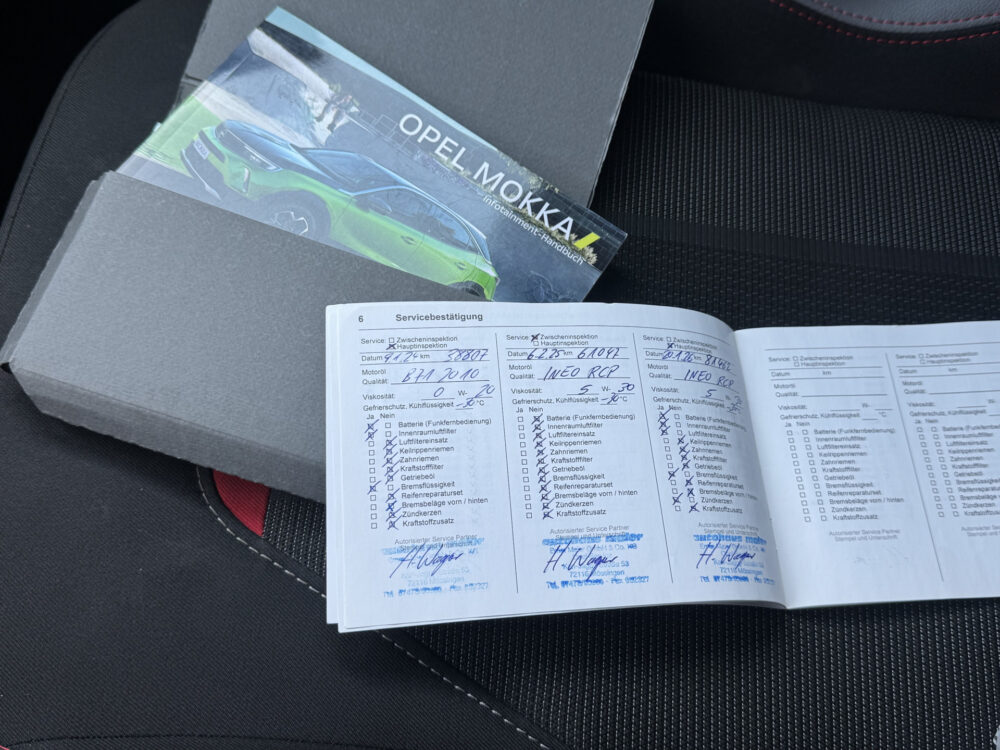 OPEL MOKKA
Infotainment-Handbuch
6 Servicebestätigung
Service: Zwischeninspektion
Hauptinspektion
Datum 9.1.24 km 38807
Motoröl
Qualität: B71 2010
Viskosität: 0 W- 20
Gefrierschutz, Kühlflüssigkeit -30 °C
Ja Nein
Batterie (Funkfernbedienung)
Innenraumluftfilter
Luftfiltereinsatz
Keilrippenriemen
Zahnriemen
Kraftstofffilter
Getriebeöl
Bremsflüssigkeit
Reifenreparaturset
Bremsbeläge vorn / hinten
Zündkerzen
Kraftstoffzusatz
Autorisierter Service Partner
Stempel und Unterschrift
H. Wager
72116 Mössingen
Service: Zwischeninspektion
Hauptinspektion
Datum 6.2.25 km 61042
Motoröl
Qualität: INEO RCP
Viskosität: 5 W- 30
Gefrierschutz, Kühlflüssigkeit -30 °C
Ja Nein
Batterie (Funkfernbedienung)
Innenraumluftfilter
Luftfiltereinsatz
Keilrippenriemen
Zahnriemen
Kraftstofffilter
Getriebeöl
Bremsflüssigkeit
Reifenreparaturset
Bremsbeläge vorn / hinten
Zündkerzen
Kraftstoffzusatz
Autorisierter Service Partner
H. Wager
72116 Mössingen
Service: Zwischeninspektion
Hauptinspektion
Datum 20.1.26 km 81462
Motoröl
Qualität: INEO RCP
Viskosität: 5 W-
Gefrierschutz, Kühlflüssigkeit
Ja Nein
Batterie (Funkfernbedienung)
Innenraumluftfilter
Luftfiltereinsatz
Keilrippenriemen
Zahnriemen
Kraftstofffilter
Getriebeöl
Bremsflüssigkeit
Reifenreparaturset
Bremsbeläge vorn / hinten
Zündkerzen
Kraftstoffzusatz
Autorisierter Service Partner
Stempel und Unterschrift
H. Wager
72116 Mössingen
Service: Zwischeninspektion
Hauptinspektion
Datum km
Motoröl
Qualität:
Viskosität: W-
Gefrierschutz, Kühlflüssigkeit °C
Ja Nein
Batterie (Funkfernbedienung)
Innenraumluftfilter
Luftfiltereinsatz
Keilrippenriemen
Zahnriemen
Kraftstofffilter
Getriebeöl
Bremsflüssigkeit
Reifenreparaturset
Bremsbeläge vorn / hinten
Zündkerzen
Kraftstoffzusatz
Autorisierter Service Partner
Stempel und Unterschrift
Service: Zwischeninspektion
Hauptinspektion
Datum km
Motoröl
Qualität:
Viskosität:
Gefrierschutz, Kühlflüssigkeit
Ja Nein
Batterie (Funkfernbedienung)
Innenraumluftfilter
Luftfiltereinsatz
Keilrippenriemen
Zahnriemen
Kraftstofffilter
Getriebeöl
Bremsflüssigkeit
Reifenreparaturset
Bremsbeläge vorn
Zündkerzen
Kraftstoffzusatz
Autorisierter Service
Stempel und